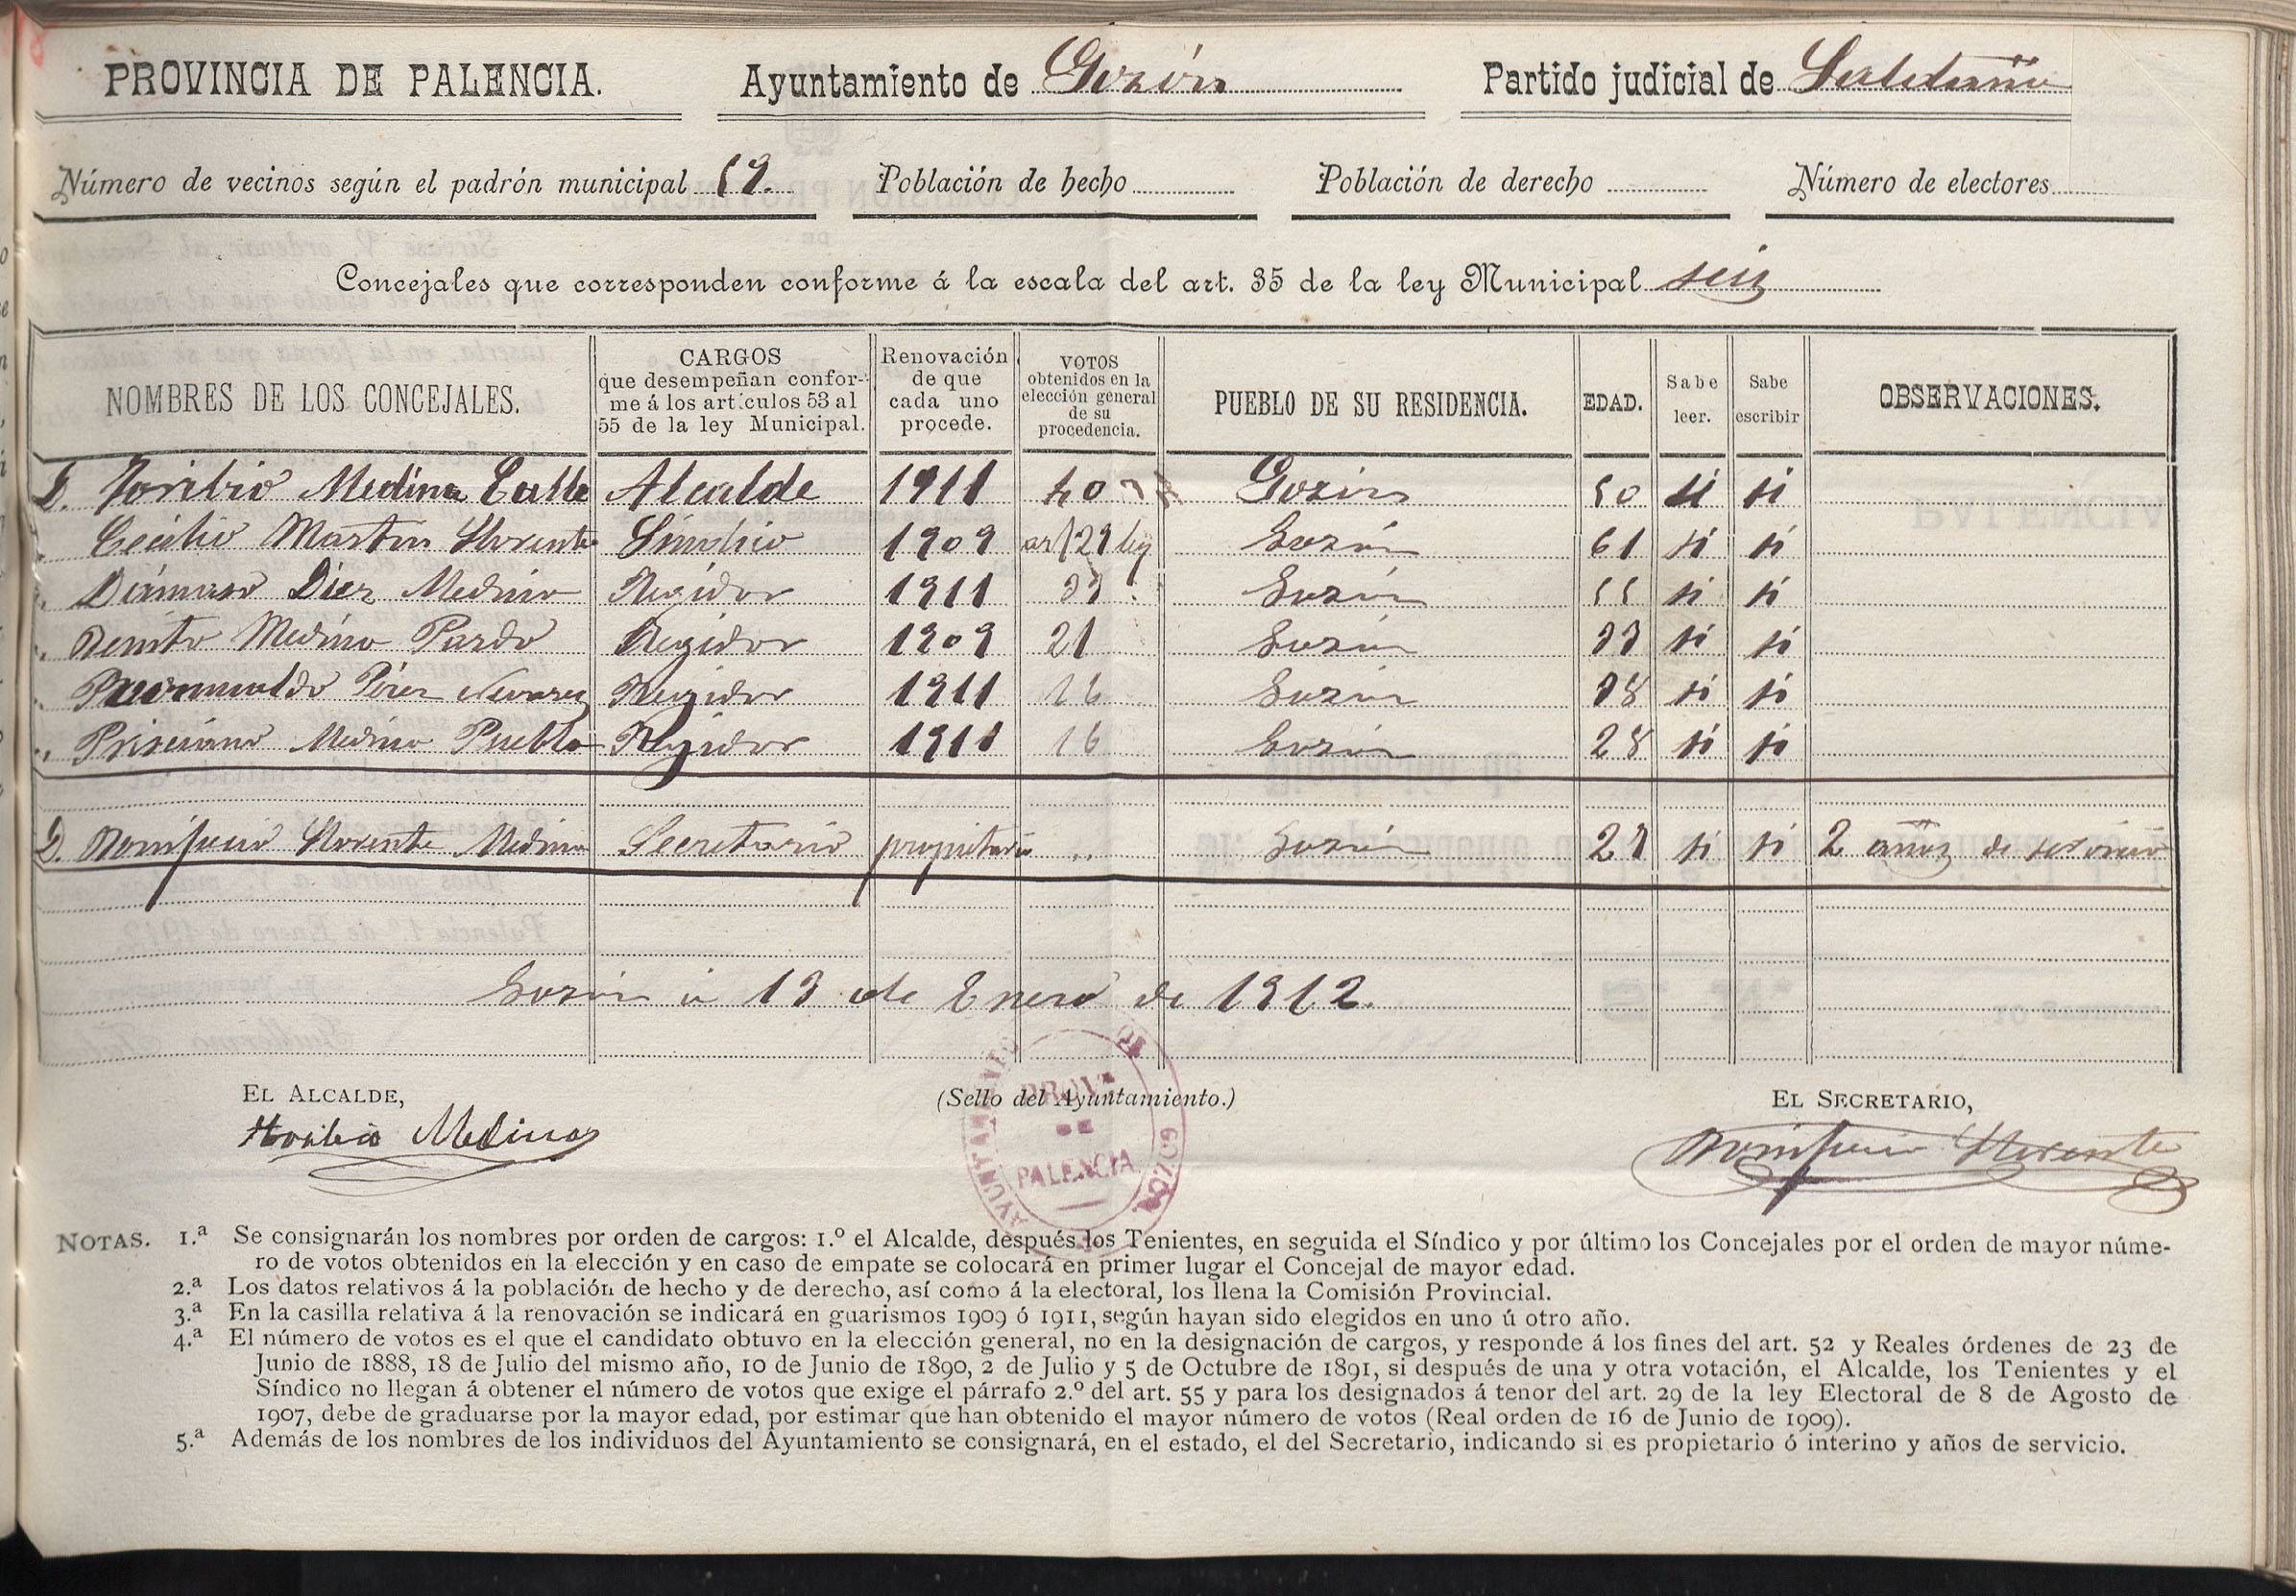 PROVINCIA DE PALENCIA. Ayuntamiento de Gozón Partido judicial de Saldaña
Número de vecinos según el padrón municipal 59. Población de hecho Población de derecho Número de electores
Concejales que corresponden conforme á la escala del art. 35 de la ley Municipal seis
NOMBRES DE LOS CONCEJALES.
CARGOS
que desempeñan confor-
me á los artículos 53 al
55 de la ley Municipal.
Renovación
de que
cada uno
procede.
VOTOS
obtenidos en la
elección general
de su
procedencia.
PUEBLO DE SU RESIDENCIA.
EDAD.
Sabe
leer.
Sabe
escribir
OBSERVACIONES.
D. Toribio Medina Calle Alcalde 1911 40 Gozón 50 si si
Cecilio Martin Llorente Síndico 1909 art 29 ley Gozón 61 si si
Dámaso Diez Medina Regidor 1911 33 Gozón 55 si si
Benito Medina Pardo Regidor 1909 21 Gozón 33 si si
Pérez Regidor 1911 16 Gozón 38 si si
Prisciano Medina Puebla Regidor 1911 16 Gozón 28 si si
D. Bonifacio Llorente Medina Secretario propietario Gozón 23 si si 2 años de servicio
Gozón á 13 de Enero de 1912.
EL ALCALDE, (Sello del Ayuntamiento.) EL SECRETARIO,
Toribio Medina
Bonifacio Llorente
AYUNTAMIENTO DE GOZON
PROV.ª
DE
PALENCIA
NOTAS. 1.ª Se consignarán los nombres por orden de cargos: 1.º el Alcalde, después los Tenientes, en seguida el Síndico y por último los Concejales por el orden de mayor núme-
ro de votos obtenidos en la elección y en caso de empate se colocará en primer lugar el Concejal de mayor edad.
2.ª Los datos relativos á la población de hecho y de derecho, así como á la electoral, los llena la Comisión Provincial.
3.ª En la casilla relativa á la renovación se indicará en guarismos 1909 ó 1911, según hayan sido elegidos en uno ú otro año.
4.ª El número de votos es el que el candidato obtuvo en la elección general, no en la designación de cargos, y responde á los fines del art. 52 y Reales órdenes de 23 de
Junio de 1888, 18 de Julio del mismo año, 10 de Junio de 1890, 2 de Julio y 5 de Octubre de 1891, si después de una y otra votación, el Alcalde, los Tenientes y el
Síndico no llegan á obtener el número de votos que exige el párrafo 2.º del art. 55 y para los designados á tenor del art. 29 de la ley Electoral de 8 de Agosto de
1907, debe de graduarse por la mayor edad, por estimar que han obtenido el mayor número de votos (Real orden de 16 de Junio de 1909).
5.ª Además de los nombres de los individuos del Ayuntamiento se consignará, en el estado, el del Secretario, indicando si es propietario ó interino y años de servicio.